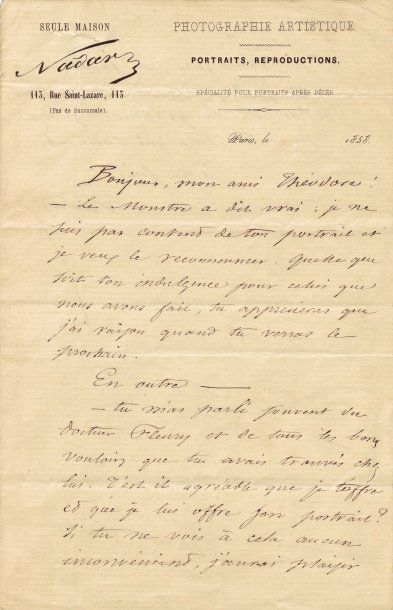 SEULE MAISON
Nadar
113, Rue Saint-Lazare, 113
(Pas de Succursale).
PHOTOGRAPHIE ARTISTIQUE
PORTRAITS, REPRODUCTIONS.
SPÉCIALITÉ POUR PORTRAITS APRÈS DÉCÈS.
Paris, le 1858.
Bonjour, mon ami Théodore!
— Le Monstre a dit vrai : je ne
suis pas content de ton portrait et
je veux le recommencer. Quelle que
soit ton indulgence pour celui que
nous avons fait, tu apprécieras que
j'ai raison quand tu verras le
prochain.
En outre —
— tu m'as parlé souvent du
docteur Fleury et de tous les bons
vouloirs que tu avais trouvés chez
lui. T'est il agréable que je t'offre
et que je lui offre son portrait?
Si tu ne vois à cela aucun
inconvénient, j'aurai plaisir